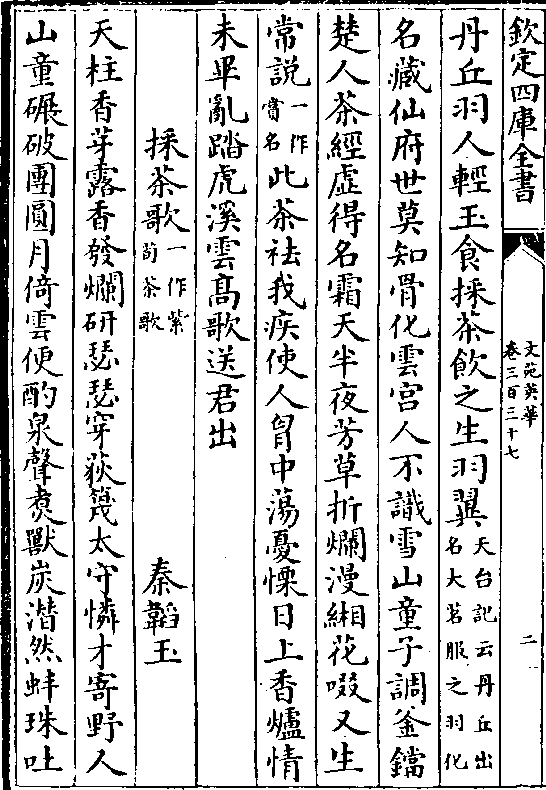 欽定四庫全書
文苑英華
卷三百三十七
二
丹丘羽人輕玉食採茶飲之生羽翼天台記云丹丘出名大茗服之羽化
名藏仙府世莫知骨化雲宮人不識雪山童子調金鐺
楚人茶經虛得名霜天半夜芳草折爛漫緗花啜又生
常說一作賞名此茶祛我疾使人胷中蕩憂慄日上香爐情
未平亂踏虎溪雲髙歌送君出
採茶歌一作紫荀茶歌 秦韜玉
天柱香芽露香發爛研瑟瑟穿荻篾太守憐才寄野人
山童碾破團圓月倚雲便酌泉聲煑獸炭潛然蚌珠吐